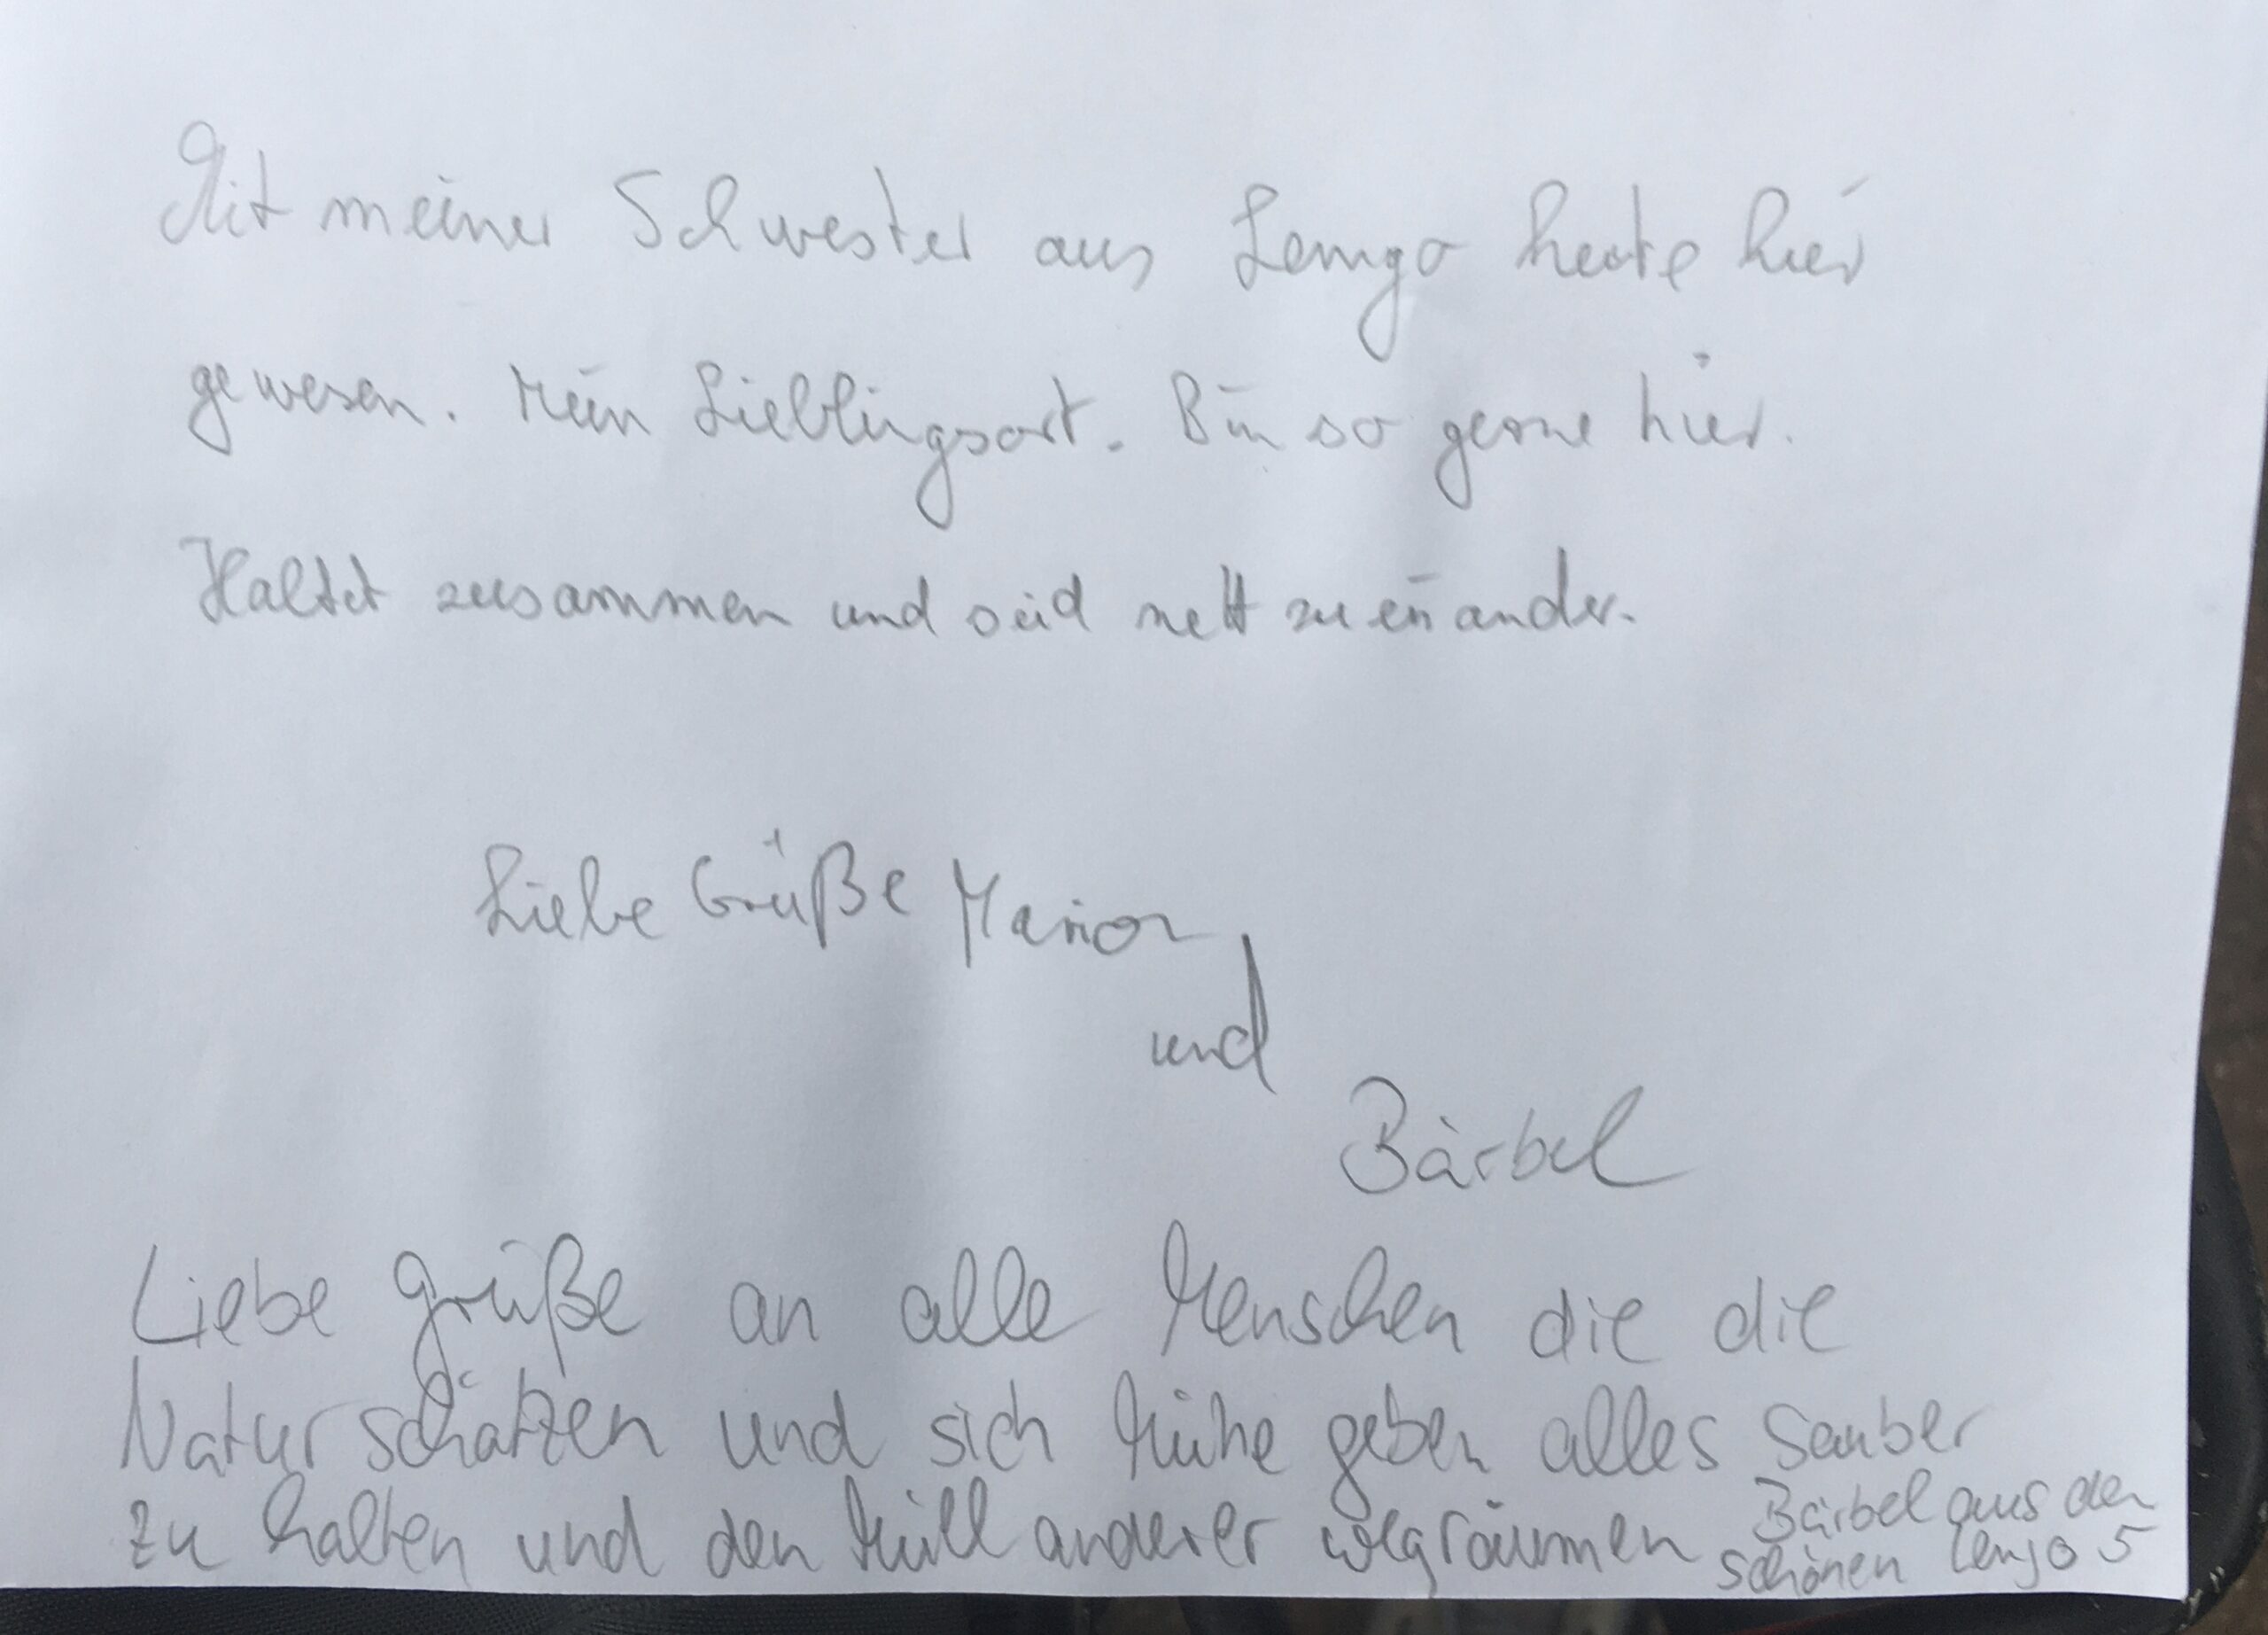 Mit meiner Schwester aus Lemgo heute hier
gewesen. Mein Lieblingsort. Bin so gerne hier.
Haltet zusammen und seid nett zueinander.
Liebe Grüße Marion
und
Bärbel
Liebe Grüße an alle Menschen die die
Natur schätzen und sich Mühe geben alles sauber
zu halten und den Müll anderer wegräumen
Bärbel aus den
schönen Lemgo